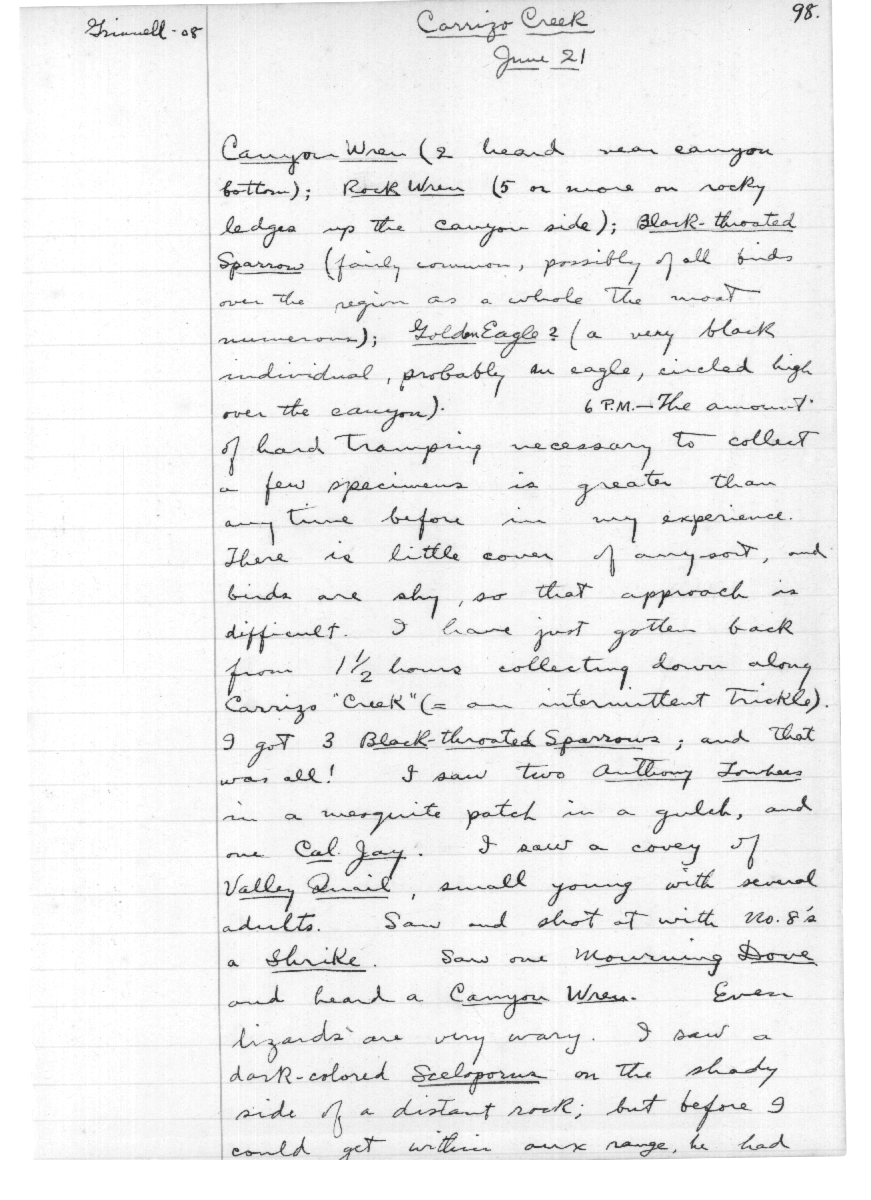 Grinnell - 08
98.
Carrizo Creek
June 21
Canyon Wren (2 heard near canyon
bottom); Rock Wren (5 or more on rocky
ledges up the canyon side); Black-throated
Sparrow (fairly common, possibly of all birds
over the region as a whole the most
numerous); Golden Eagle? (a very black
individual, probably an eagle, circled high
over the canyon). 6 P.M.—The amount
of hard tramping necessary to collect
a few specimens is greater than
any time before in my experience.
There is little cover of any sort, and
birds are shy, so that approach is
difficult. I have just gotten back
from 1 1/2 hours collecting down along
Carrizo "Creek" (= an intermittent trickle).
I got 3 Black-throated Sparrows; and that
was all! I saw two Anthony Towhees
in a mesquite patch in a gulch, and
one Cal. Jay. I saw a covey of
Valley Quail, small young with several
adults. Saw and shot at with No. 8's
a Shrike. Saw one Mourning Dove
and heard a Canyon Wren. Even
lizards are very wary. I saw a
dark-colored Sceloporus on the shady
side of a distant rock; but before I
could get within aux range, he had